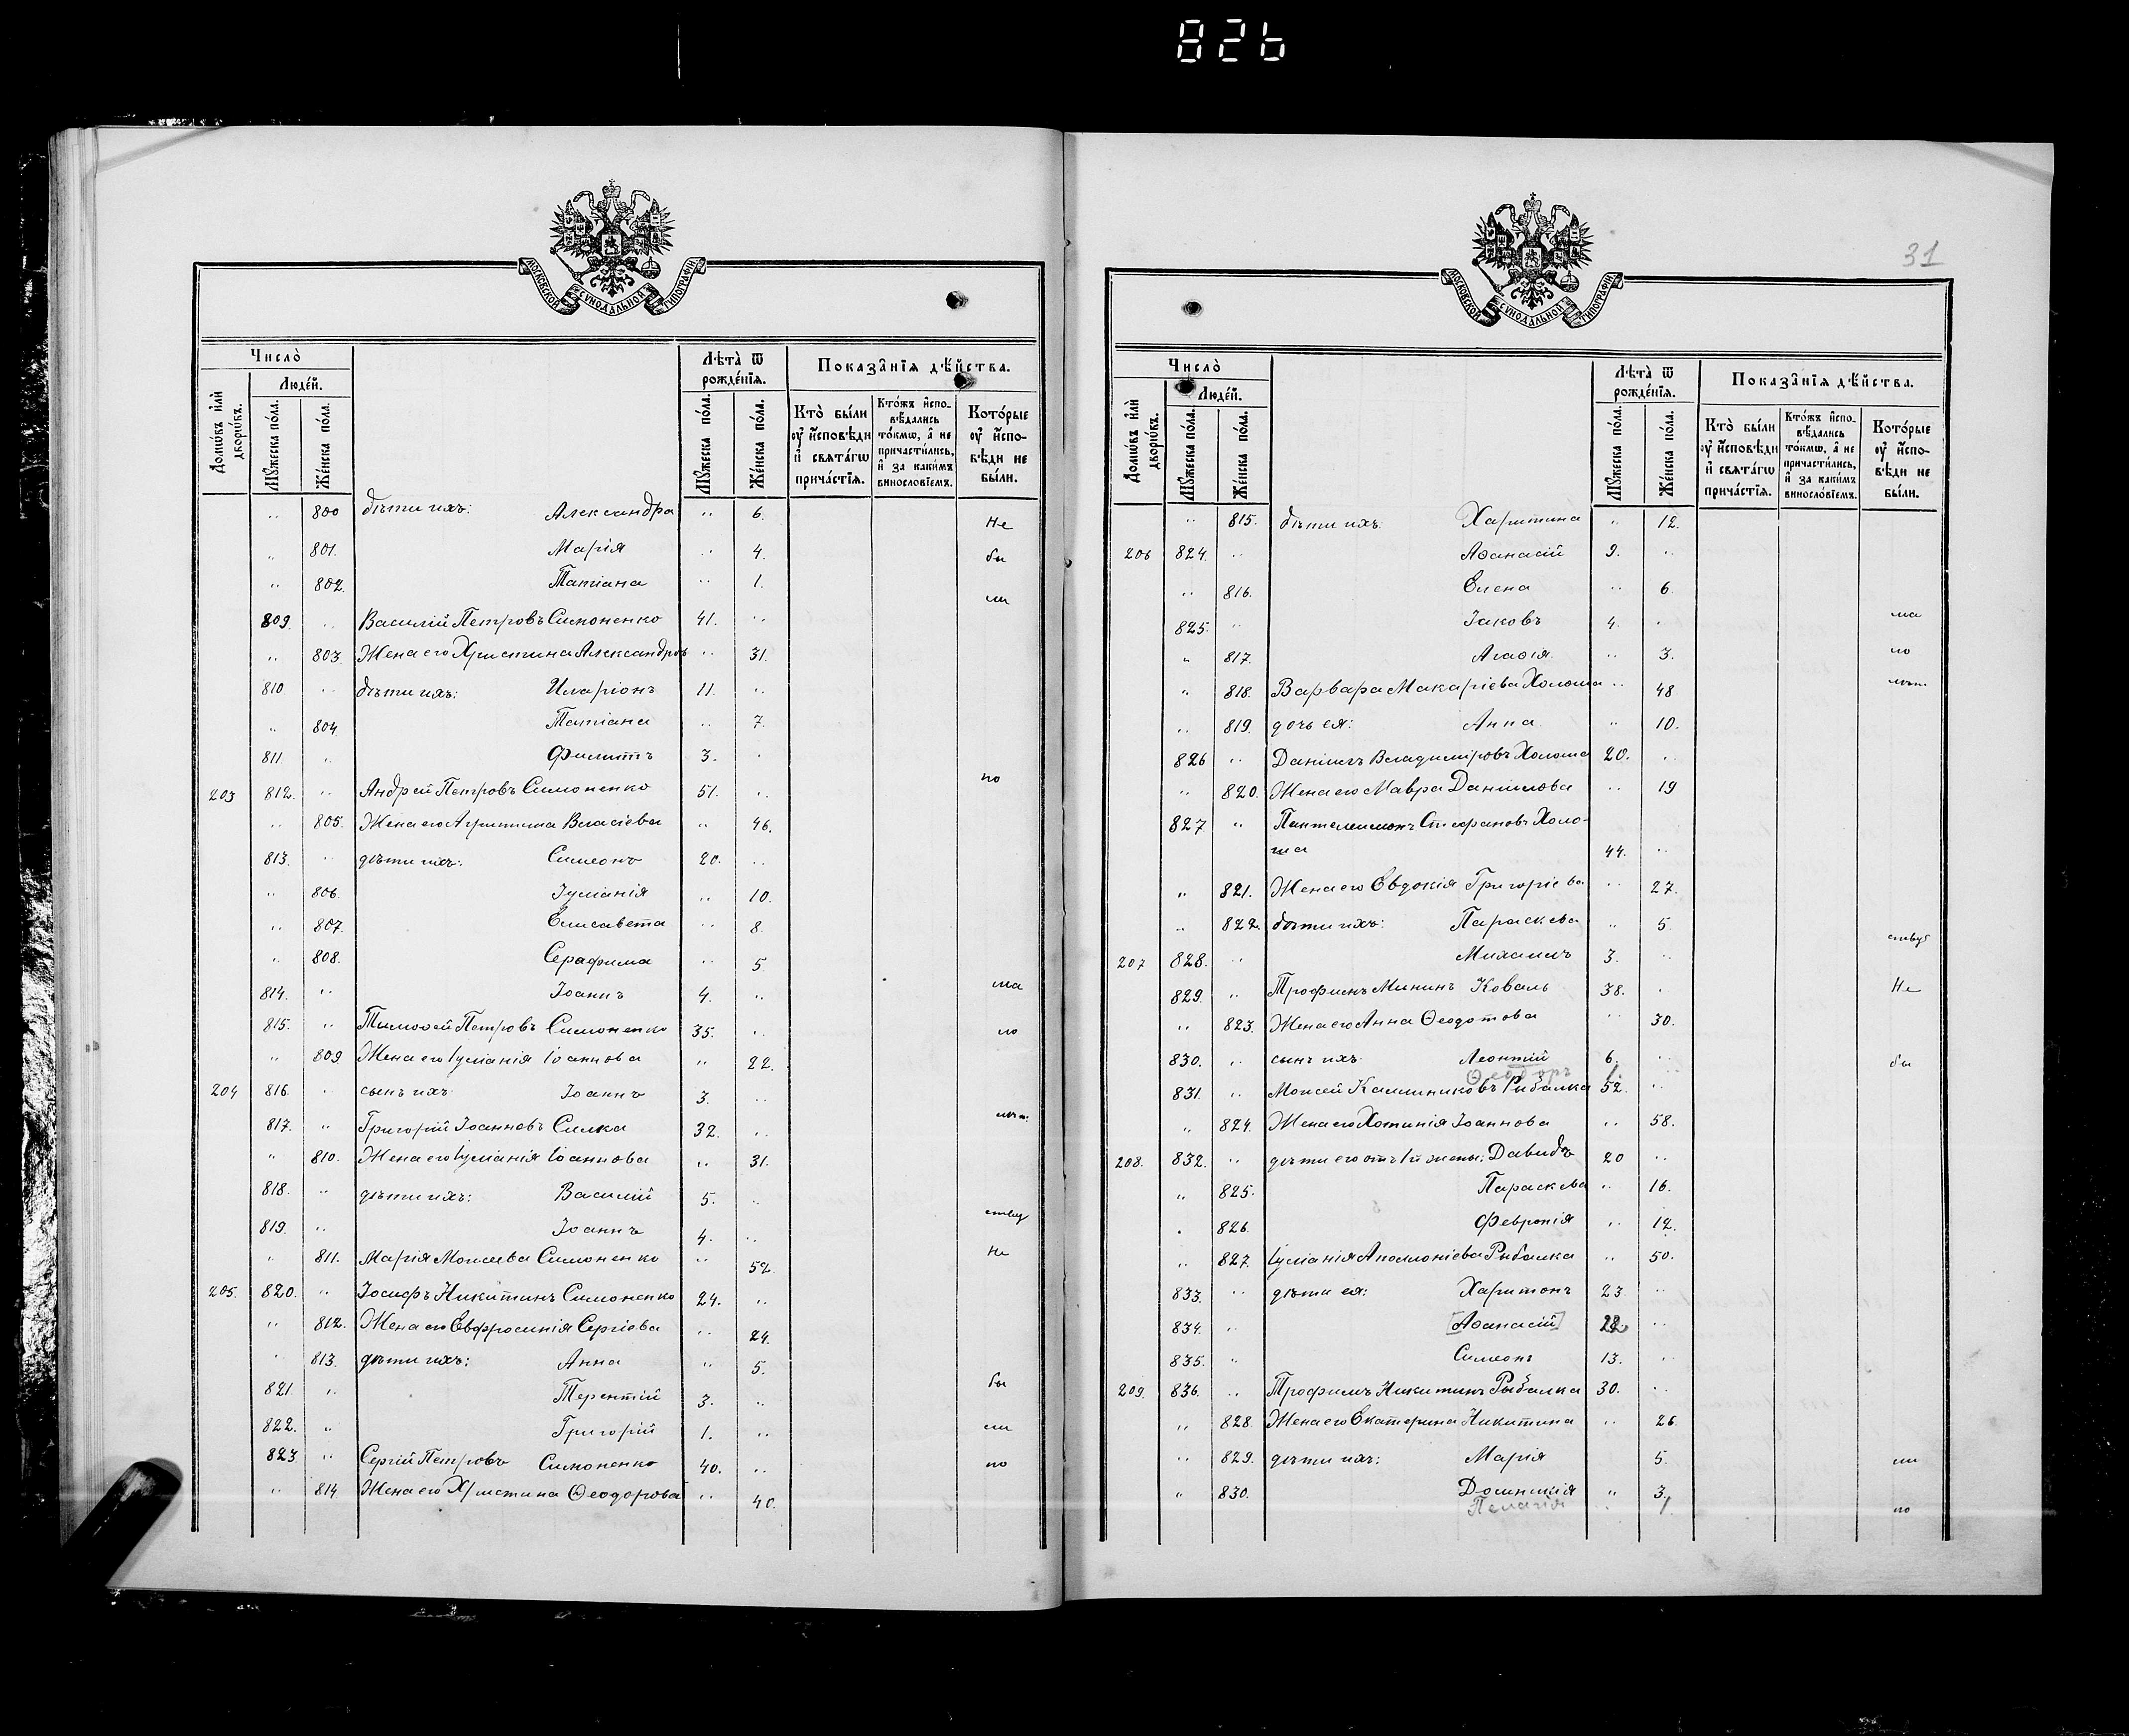 826
МОСКОВСКОЙ СѴНОДАЛЬНОЙ ТИПОГРАФІИ.
Число̀
Людéй.
Домѡ́въ и҆лѝ дворѡ́въ.
Мꙋ́жеска по́ла.
Же́нска по́ла.
Лѣ́та ѿ рожде́нїѧ.
Мꙋ́жеска по́ла.
Же́нска по́ла.
Показа̑нїѧ дѣ́йства.
Кто̀ бы́ли оу҆ и҆́сповѣди и҆ свѧта́гѡ прича́стїѧ.
Кто́жъ и҆спо-вѣ́дались то́кмѡ, а҆ не причасти́лись, и҆ за каки́мъ виносло́вїемъ.
Кото́рые оу҆ и҆́спо-вѣди не бы́ли.
.. 800 дѣти ихъ: Александра .. 6. Не
.. 801. Марія .. 4. бы
.. 802. Татіана .. 1. ли
809. .. Василій Петровъ Симоненко 41. ..
.. 803. Жена его Христина Александров .. 31.
810 .. дѣти ихъ: Иларіонъ 11. ..
.. 804. Татіана .. 7.
811. .. Филиппъ 3. ..
203 812. .. Андрей Петровъ Симоненко 51. .. по
.. 805. Жена его Агриппина Власіева .. 46.
813. .. дѣти ихъ: Симеонъ 20. ..
.. 806. Іуліанія .. 10.
.. 807. Елисавета .. 8.
.. 808. Серафима .. 5
814. .. Іоаннъ 4. .. ма
815. .. Тимоѳей Петровъ Симоненко 35. .. ло
.. 809 Жена его Іуліанія Іоаннова .. 22.
204 816. .. сынъ ихъ Іоаннъ 3. ..
817. .. Григорій Іоанновъ Силка 32. .. лѣт.
.. 810. Жена его Іуліанія Іоаннова .. 31.
818. .. дѣти ихъ: Василій 5. ..
819. .. Іоаннъ 4. .. ству
.. 811. Марія Моисеева Симоненко .. 52. Не
205. 820. .. Іосифъ Никитинъ Симоненко 24. ..
.. 812. Жена его Евфросинія Сергіева .. 24.
.. 813. дѣти ихъ: Анна .. 5.
821. .. Терентій 3. .. бы
822. .. Григорій 1. .. ли
823 .. Сергій Петровъ Симоненко 40. .. по
.. 814 Жена его Христина Ѳеодорова .. 40.
31
МОСКОВСКОЙ СѴНОДАЛЬНОЙ ТИПОГРАФІИ.
Число̀
Людéй.
Домѡ́въ и҆лѝ дворѡ́въ.
Мꙋ́жеска по́ла.
Же́нска по́ла.
Лѣ́та ѿ рожде́нїѧ.
Мꙋ́жеска по́ла.
Же́нска по́ла.
Показа̑нїѧ дѣ́йства.
Кто̀ бы́ли оу҆ и҆́сповѣди и҆ свѧта́гѡ прича́стїѧ.
Кто́жъ и҆спо-вѣ́дались то́кмѡ, а҆ не причасти́лись, и҆ за каки́мъ виносло́вїемъ.
Кото́рые оу҆ и҆́спо-вѣди не бы́ли.
.. 815. дѣти ихъ: Харитина .. 12.
206 824. .. Аѳанасій 9. ..
.. 816. Елена .. 6.
825. .. Іаковъ 4. .. ма
.. 817. Агаѳія .. 3. ло
.. 818. Варвара Макаріева Холоша .. 48 лѣт.
.. 819. дочь ея: Анна .. 10.
826 .. Даніилъ Владиміровъ Холоша 20. ..
.. 820. Жена его Мавра Даніилова .. 19
827 .. Пантелеимонъ Стефановъ Холо-
ша 44. ..
.. 821. Жена его Евдокія Григоріева .. 27.
.. 822. дѣти ихъ: Параскева .. 5. ству
207 828. .. Михаилъ 3. ..
829. .. Трофимъ Мининъ Коваль 38. .. Не
.. 823. Жена его Анна Ѳеодотова .. 30.
830. .. сынъ ихъ Леонтій 6. .. бы
Ѳеодоръ 1.
831. .. Моисей Каллиниковъ Рибалка 52. ..
.. 824. Жена его Хотинія Іоаннова .. 58.
208. 832. .. дѣти его отъ 1й жены: Давидъ 20 ..
.. 825. Параскева .. 16.
.. 826. Февронія .. 12.
.. 827. Іуліанія Аполлоніева Рыбалка .. 50.
833. .. дѣти ея: Харитонъ 23. ..
834. .. [Аѳанасій] 22. ..
835. .. Симеонъ 13. ..
209. 836. .. Трофимъ Никитинъ Рыбалка 30. ..
.. 828. Жена его Екатерина Никитина .. 26.
.. 829. дѣти ихъ: Марія 5. ли
.. 830. Домникія .. 3.
Пелагія .. 1 по